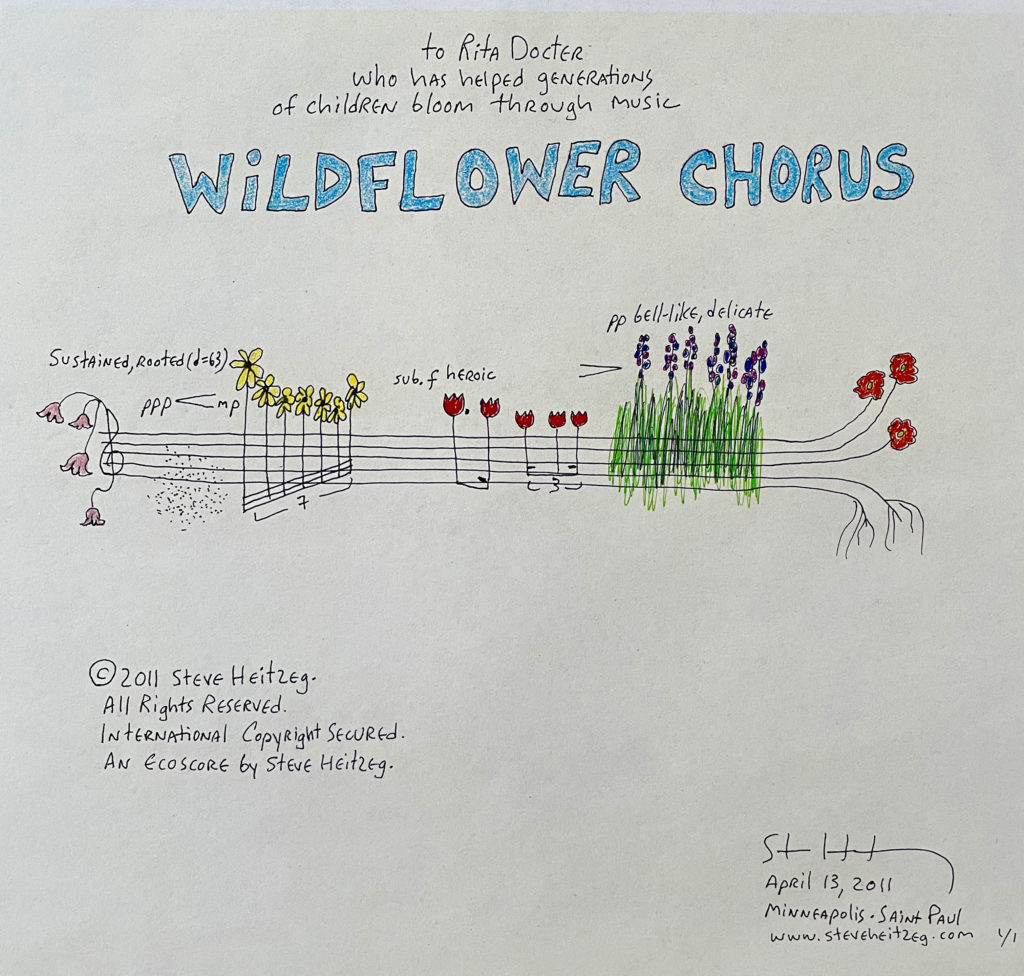 to Rita Docter
who has helped generations
of children bloom through music
WiLDFLOWER CHORUS
pp bell-like, delicate
Sustained, rooted (d=63)
sub. f heroic
ppp < mp
7
3
© 2011 Steve Heitzeg.
All Rights Reserved.
International Copyright Secured.
An Ecoscore by Steve Heitzeg.
April 13, 2011
Minneapolis • Saint Paul
www.steveheitzeg.com 1/1